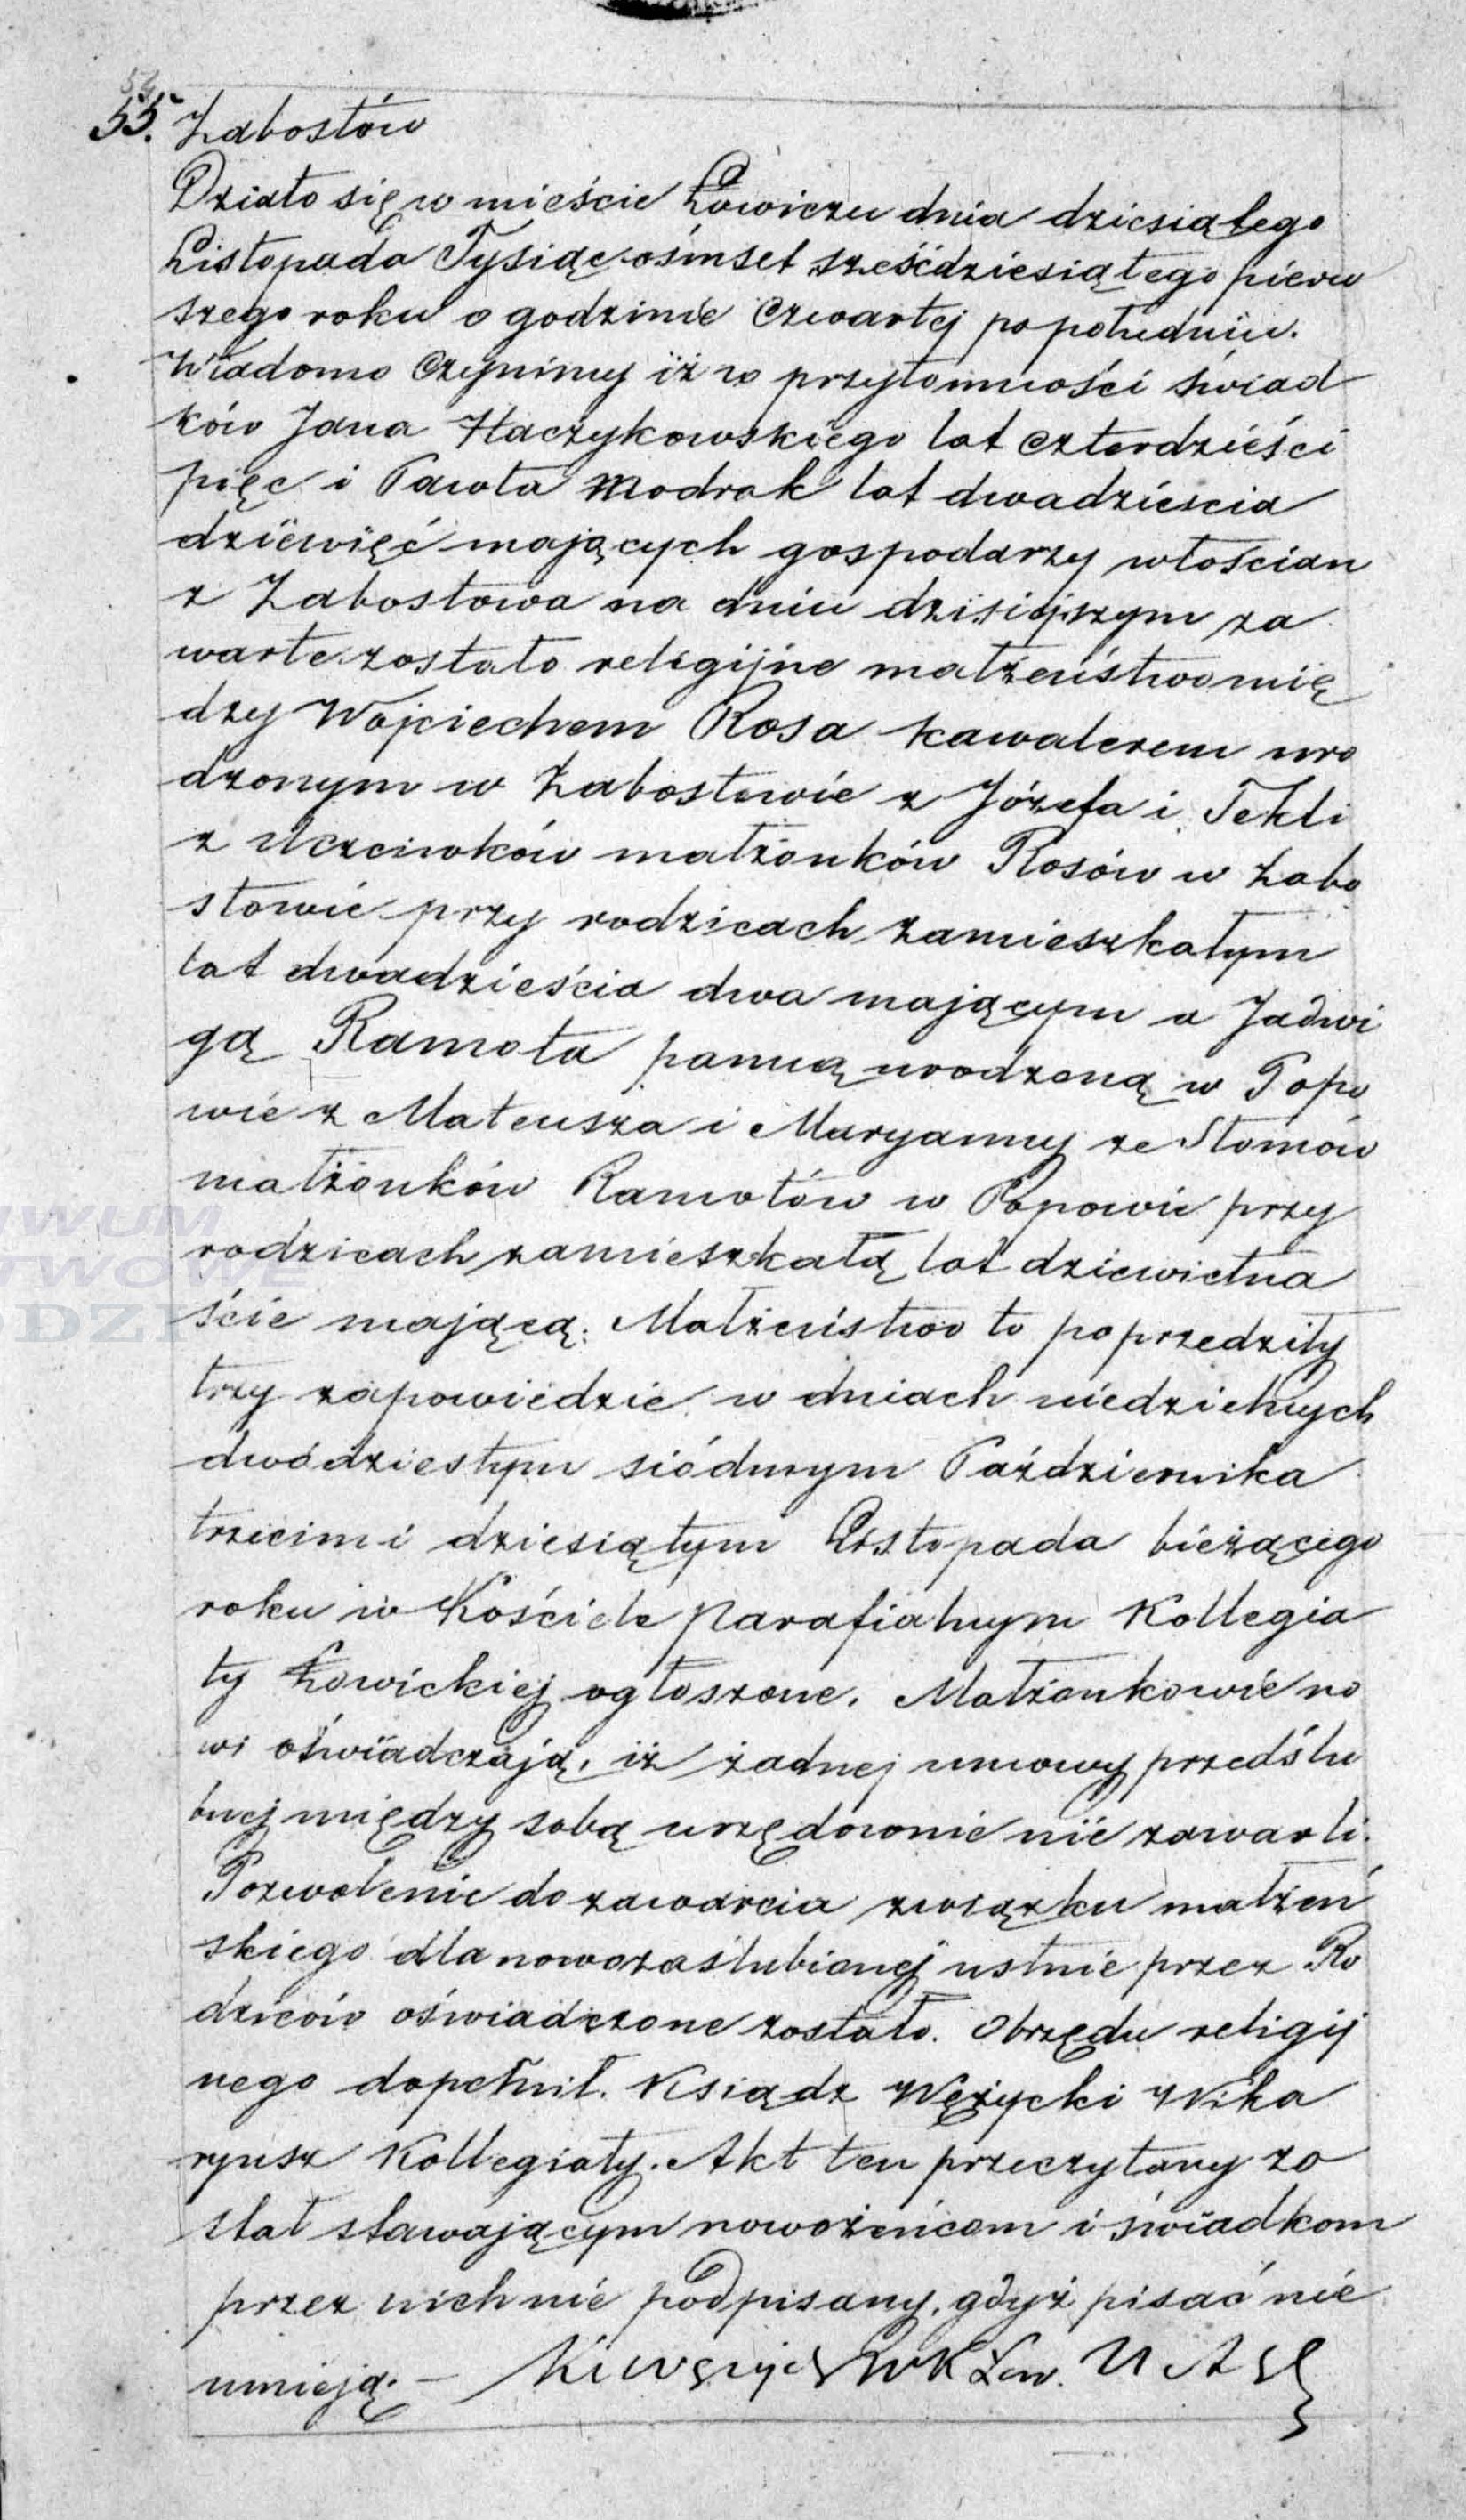 54
55. Zabostów
Działo się w mieście Łowiczu dnia dziesiątego
Listopada Tysiąc ośmset sześćdziesiątego pierw
szego roku o godzinie Czwartej po południu.
Wiadomo Czynimy iż w przytomności świad
ków Jana Haczykowskiego lat czterdzieści
pięc i Pawła Modrak lat dwadzieścia
dziewięć mających gospodarzy włościan
z Zabostowa na dniu dzisiejszym za
warte zostało religijne małżeństwo mię
dzy Wojciechem Rosa kawalerem uro
dzonym w Zabostowie z Józefa i Tekli
z Uczciwków małżonków Rosów w Zabo
stowie przy rodzicach zamieszkałym
lat dwadzieścia dwa mającym a Jadwi
gą Ramota panną urodzoną w Popo
wie z Mateusza i Maryanny ze Słomów
małżonków Ramotów w Popowie przy
rodzicach zamieszkałą lat dziewietna
ście mającą. Małżeństwo to poprzedziły
trzy zapowiedzie w dniach niedzielnych
dwódziestym siódmym Października
trzecim i dziesiątym Listopada bieżącego
roku w Kościele Parafialnym Kollegia
ty Łowickiej ogłoszone. Małżonkowie no
wi oświadczają, iż żadnej umowy przedślu
bnej między sobą urzędownie nie zawarli.
Pozwolenie do zawarcia związku małżeń
skiego dla nowozaślubionej ustnie przez Ro
dziców oświadczone zostało. Obrzędu religij
nego dopełnił. Ksiądz Wężycki Wika
ryusz Kollegiaty. Akt ten przeczytany zo
stał stawającym nowożeńcom i świadkom
przez nich nie podpisany, gdyż pisać nie
umieją. — WK Łow.